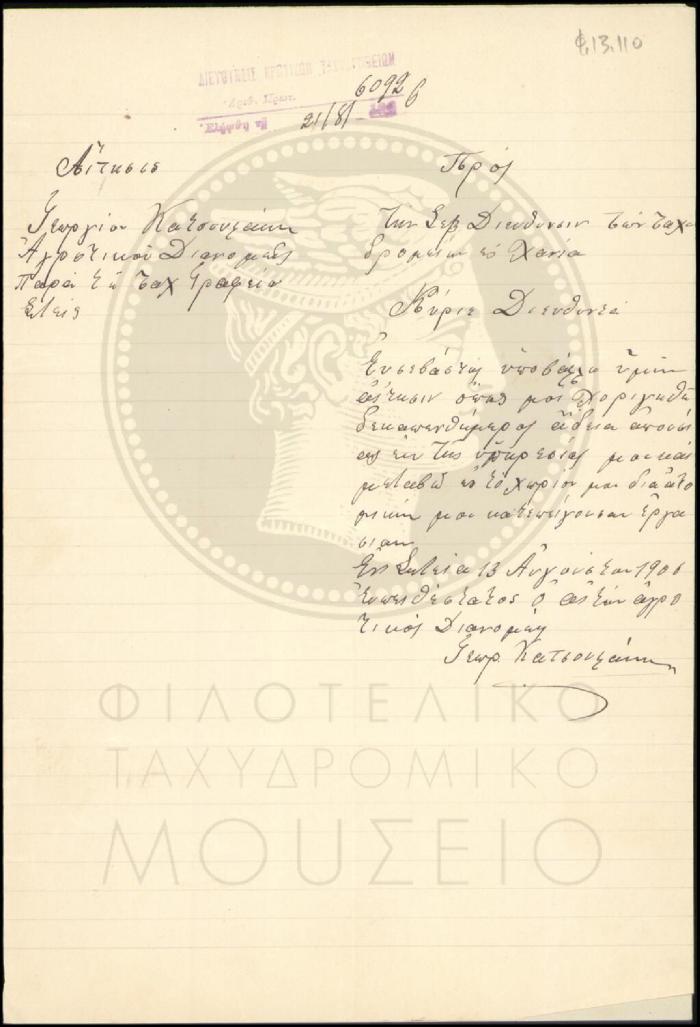 Φ.13.110
ΔΙΕΥΘΥΝΣΙΣ ΚΡΗΤΙΚΩΝ ΤΑΧΥΔΡΟΜΕΙΩΝ
Αριθ. Πρωτ. 6092
Ελήφθη τη 21/8/ 6
Αίτησις
Γεωργίου Κατσουλάκη
Αγροτικού Διανομέως
παρά τω ταχ Γραφείω
Σιτείας
Προς
την Σεβ Διεύθυνσιν των ταχυ
δρομείων εις Χανία
Κύριε Διευθυντά
Ευσεβάστως υποβάλλω υμίν
αίτησιν όπως μοι χορηγηθή
δεκαπενθήμερος άδεια απουσί
ας εκ της υπηρεσίας μου και
μεταβώ εις το χωρίον μου δια ατο
μικήν μου κατεπείγουσαν εργα
σίαν
Εν Σιτεία 13 Αυγούστου 1906
Ευπειθέστατος ο αιτών αγρο
τικός Διανομεύς
Γεωρ. Κατσουλάκης
ΦΙΛΟΤΕΛΙΚΟ
ΤΑΧΥΔΡΟΜΙΚΟ
ΜΟΥΣΕΙΟ